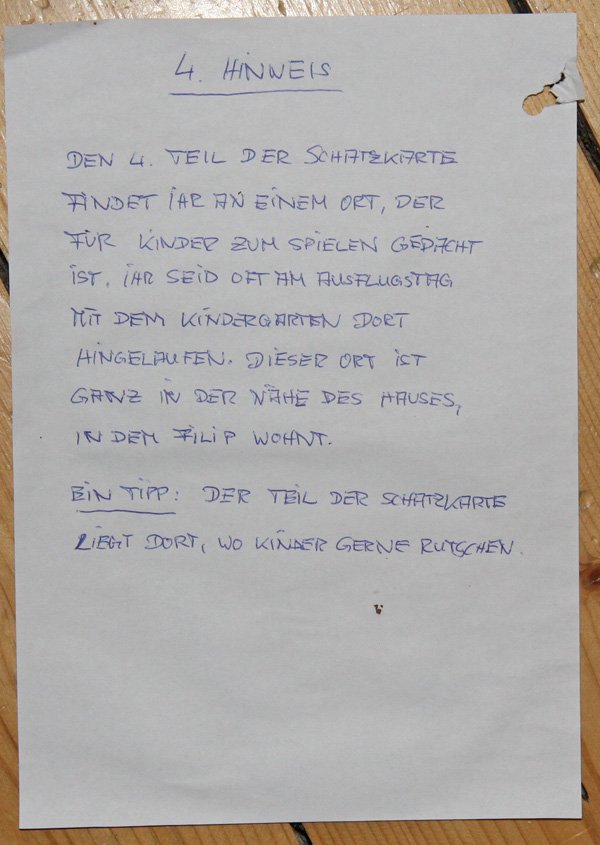 4. HINWEIS
DEN 4. TEIL DER SCHATZKARTE
FINDET IHR AN EINEM ORT, DER
FÜR KINDER ZUM SPIELEN GEDACHT
IST. IHR SEID OFT AM AUSFLUGSTAG
MIT DEM KINDERGARTEN DORT
HINGELAUFEN. DIESER ORT IST
GANZ IN DER NÄHE DES HAUSES,
IN DEM FILIP WOHNT.
EIN TIPP: DER TEIL DER SCHATZKARTE
LIEGT DORT, WO KINDER GERNE RUTSCHEN.